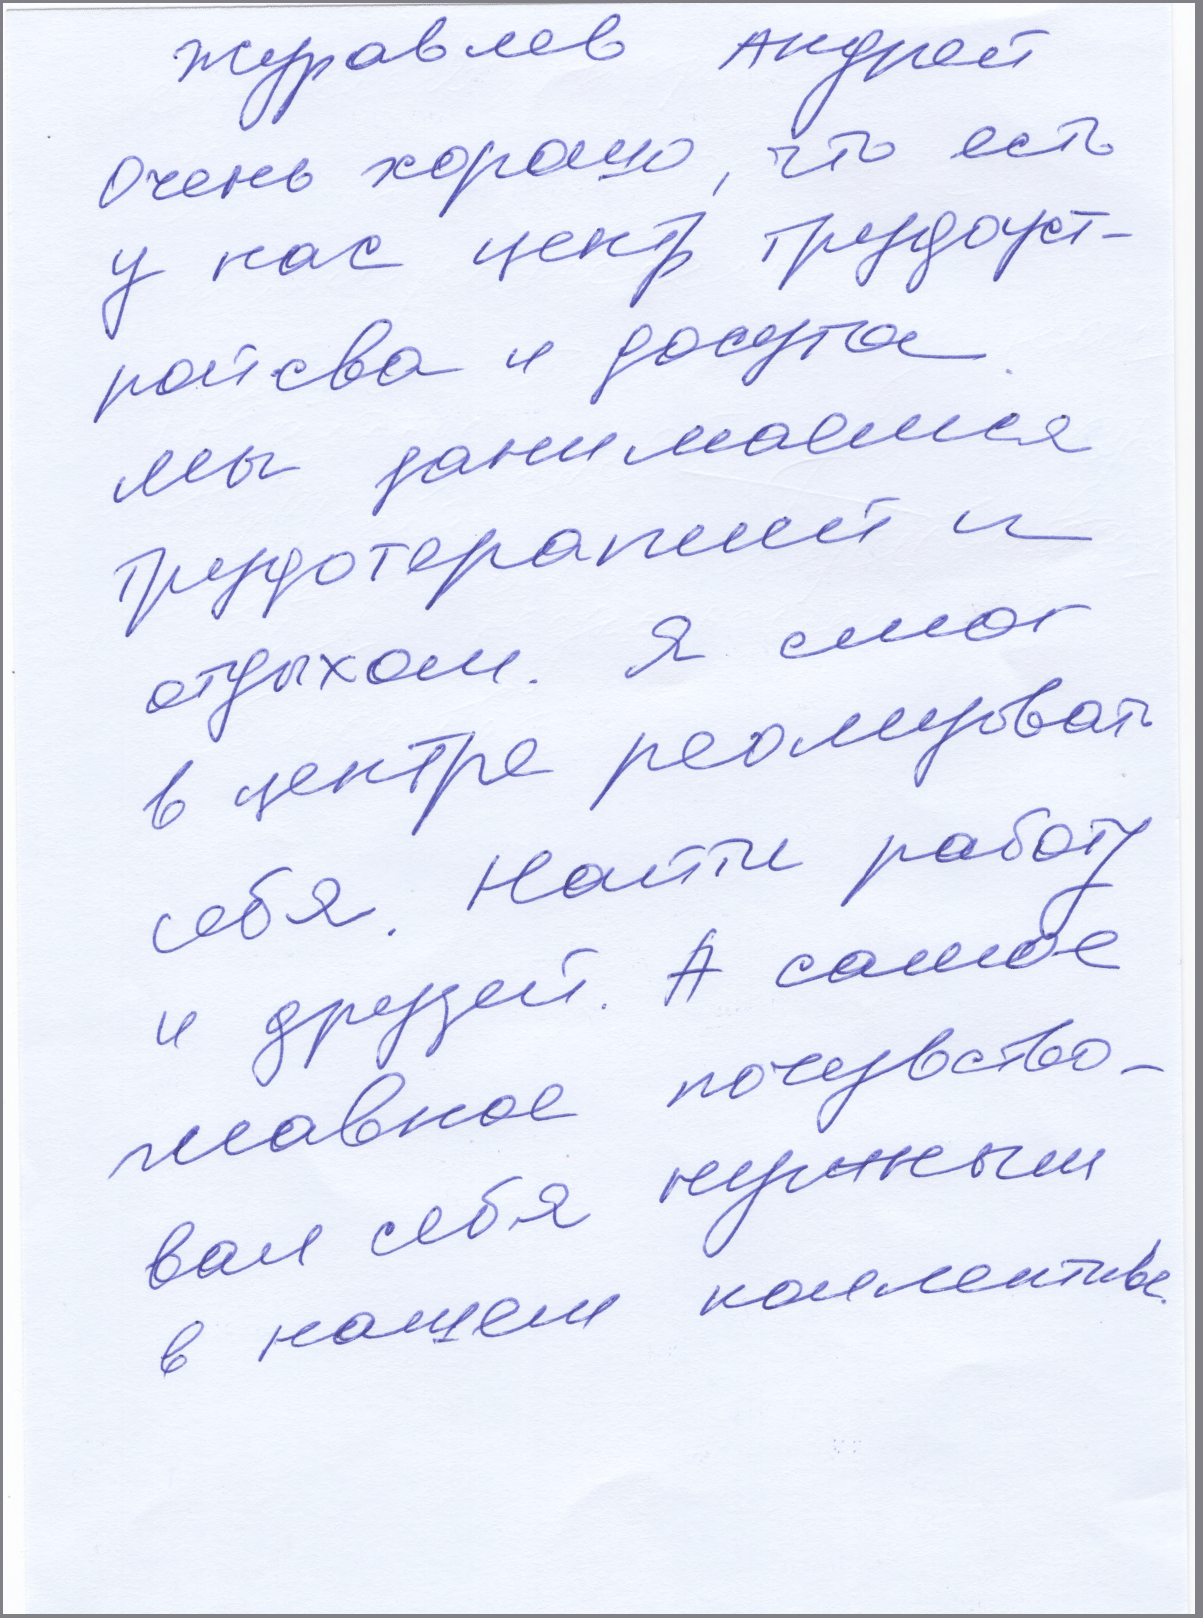 Журавлев Андрей
Очень хорошо, что есть
у нас центр трудоуст-
ройсва и досуга.
Мы занимаемся
трудотерапией и
отдыхом. Я смог
в центре реализовать
себя. Найти работу
и друзей. А самое
главное почувство-
вал себя нужным
в нашем коллективе.